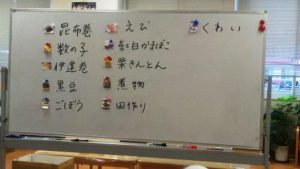 昆布巻
数の子
伊達巻
黒豆
ごぼう
えび
紅白かまぼこ
栗きんとん
煮物
田作り
くわい